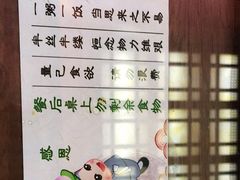 一粥一饭 当思来之不易
半丝半缕 恒念物力维艰
量己食欲 请勿浪费
餐后桌上勿剩余食物
感恩